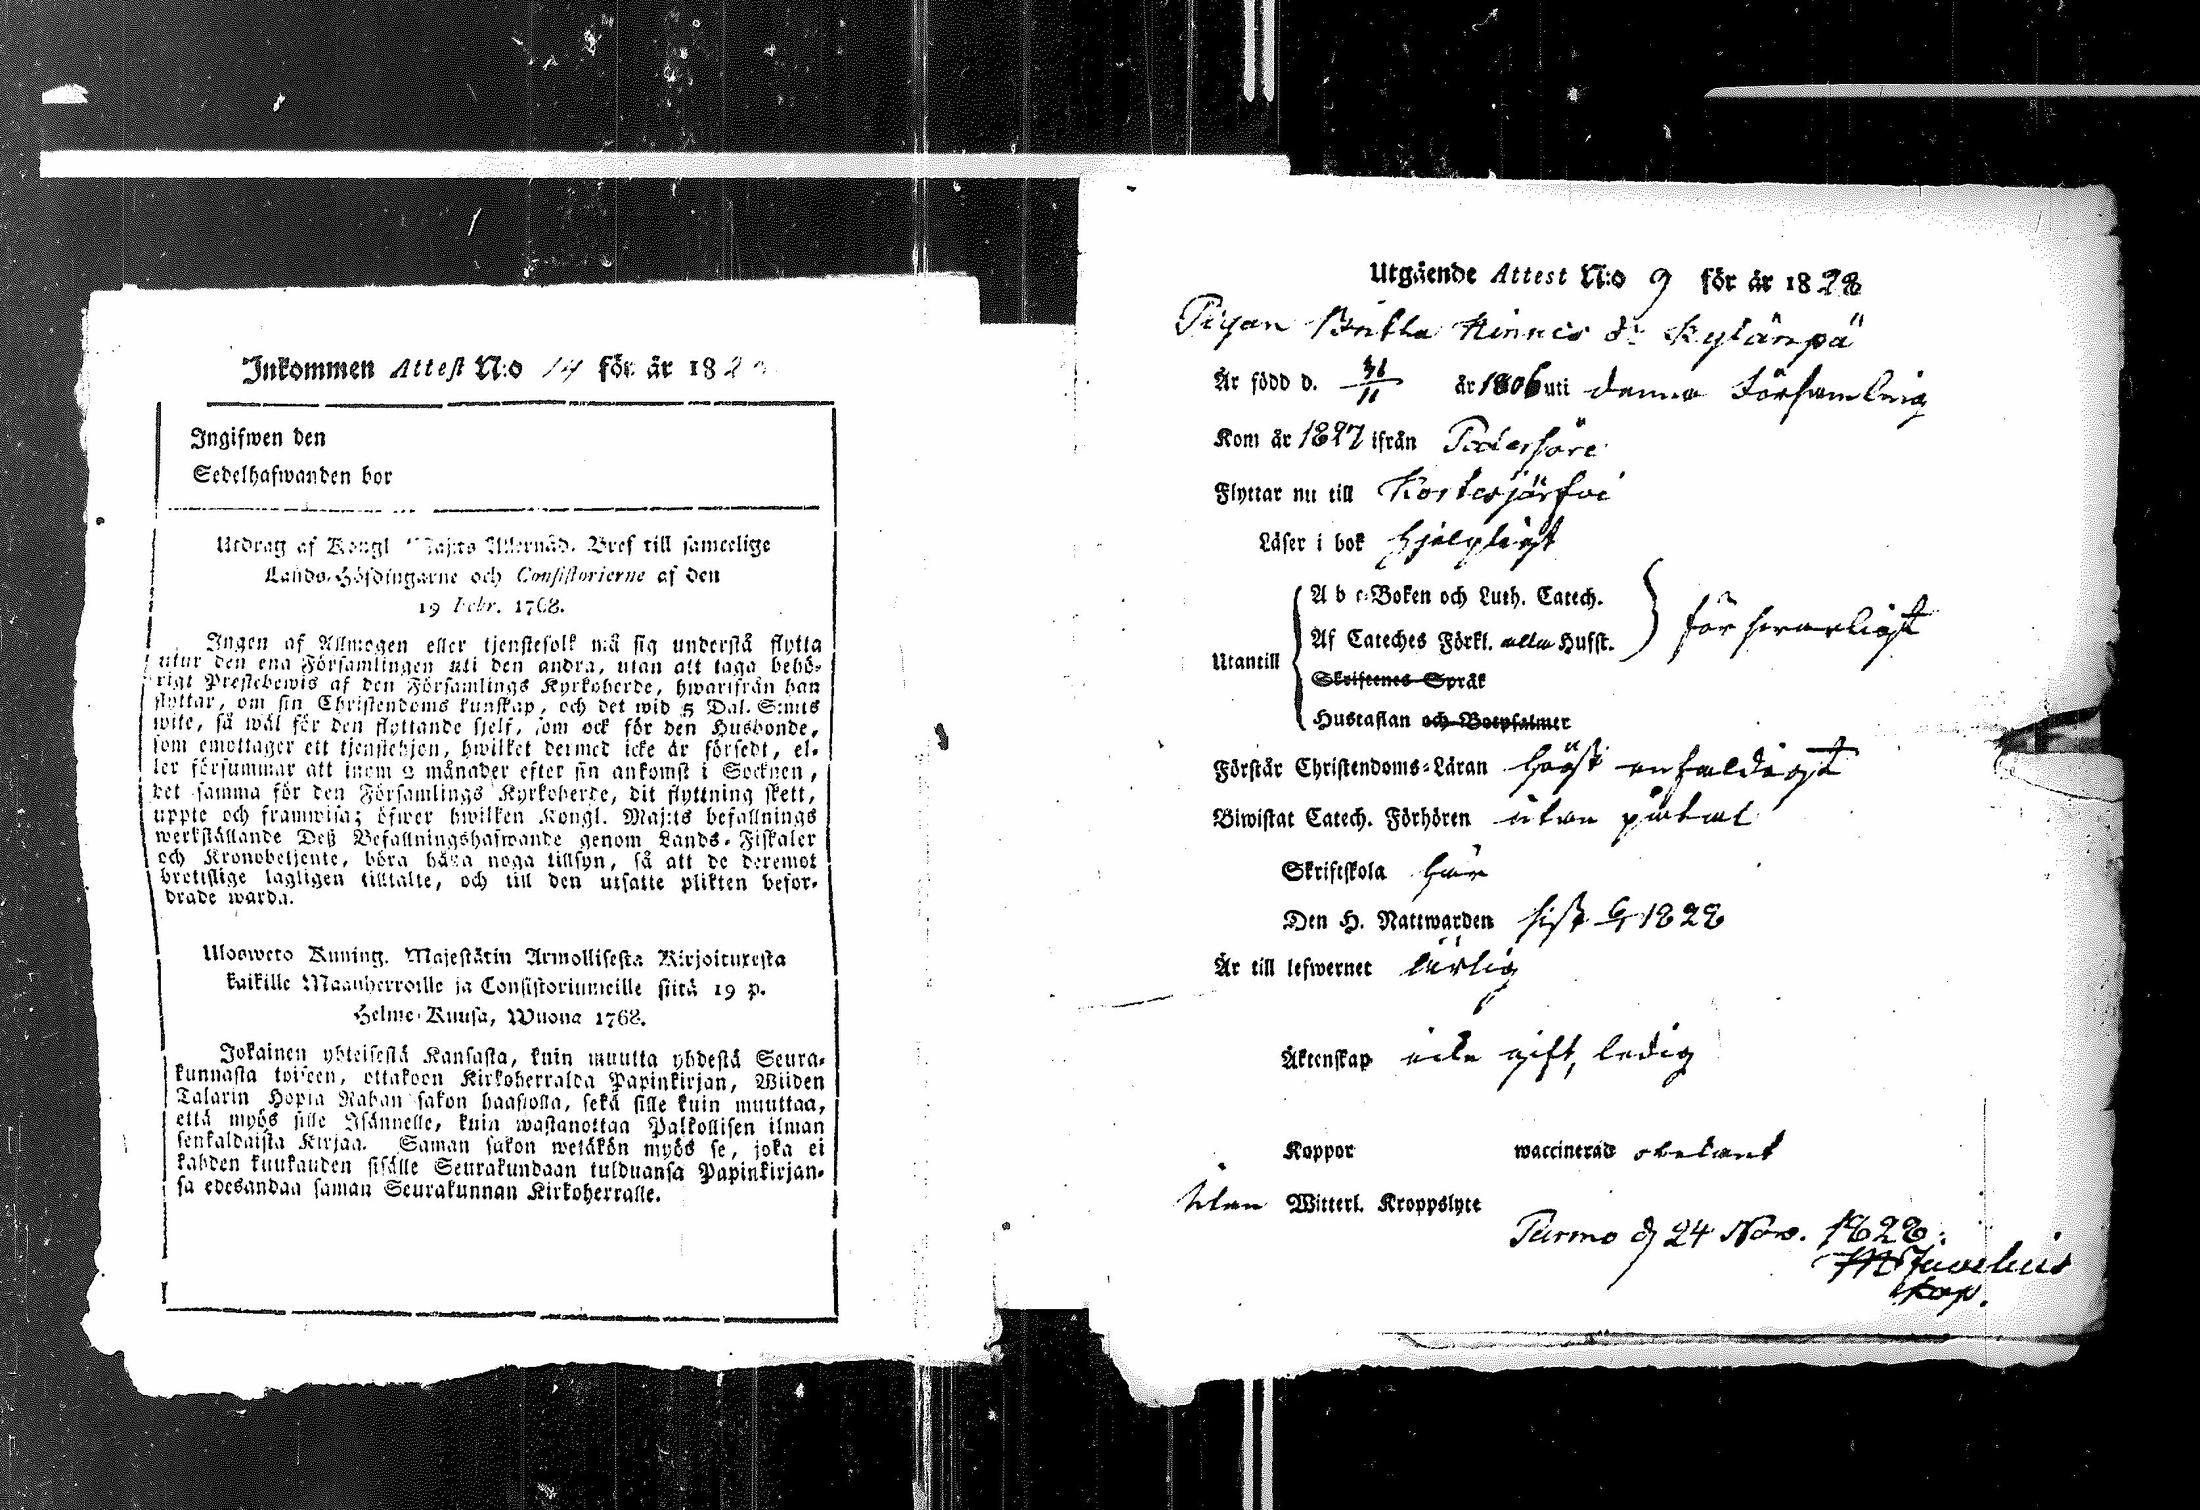 Inkommen Attest N:o 14 för år 182
Ingifwen den
Sedelhafwanden bor
Utdrag af Kongl Maj:ts Allernåd. Bref till samtelige
Lands-Höfdingarne och Consistorierne af den
19 Febr. 1768.
Ingen af Allmogen eller tjenstefolk må sig understå flytta
utur den ena Församlingen uti den andra, utan att taga behö-
rigt Prestebewis af den Församlings Kyrkoherde, hwarifrån han
flyttar, om sin Christendoms kunskap, och det wid 5 Dal. S:mts
wite, så wäl för den flyttande sjelf, som ock för den Husbonde,
som emottager ett tjenstehjon, hwilket dermed icke är försedt, el-
ler försummar att inom 2 månader efter sin ankomst i Socknen,
det samma för den Församlings Kyrkoherde, dit flyttning skett,
uppte och framwisa; öfwer hwilken Kongl. Maj:ts befallnings
werkställande Deß Befallningshafwande genom Lands-Fiskaler
och Kronobetjente, böra hafwa noga tillsyn, så att de deremot
brottslige lagligen tilltalte, och till den utsatte plikten befor-
drade warda.
Ulosweto Kuning. Majestätin Armollisesta Kirjoituxesta
kaikille Maanherroille ja Consistoriumeille siitä 19 p.
Helme-Kuusa, Wuona 1768.
Jokainen yhteisestä Kansasta, kuin muutta yhdestä Seura-
kunnasta toiseen, ottakoon Kirkoherralda Papinkirjan, Wiiden
Talarin Hopia Rahan sakon haastolla, sekä sille kuin muuttaa,
että myös sille Isännelle, kuin wastanottaa Palkollisen ilman
senkaldaista Kirjaa. Saman sakon wetäkön myös se, joka ei
kahden kuukauden sisälle Seurakundaan tulduansa Papinkirjan-
sa edesandaa saman Seurakunnan Kirkoherralle.
Utgående Attest N:o 9 för år 1828
Pigan Britha Hinnics dr Kylänpä
Är född d. 31/11 år 1806 uti denna Församling
Kom år 1827 ifrån Pedersöre
Flyttar nu till Kortesjärfvi
Läser i bok hjelpligt
A b c-Boken och Luth. Catech.
Af Cateches Förkl. alla Hufst. försvarligt
Utantill
Skriftenes Språk
Hustaflan och Botpsalmer
Förstår Christendoms-Läran högst enfaldigt
Biwistat Catech. Förhören utan påtal
Skriftskola här
Den H. Nattwarden sist 1828
Är till lefwernet ärlig
Äktenskap icke gift, ledig
Koppor waccinerad obekant
Utan Witterl. Kroppslyte
Purmo d 24 Nov. 1828.
Kap.